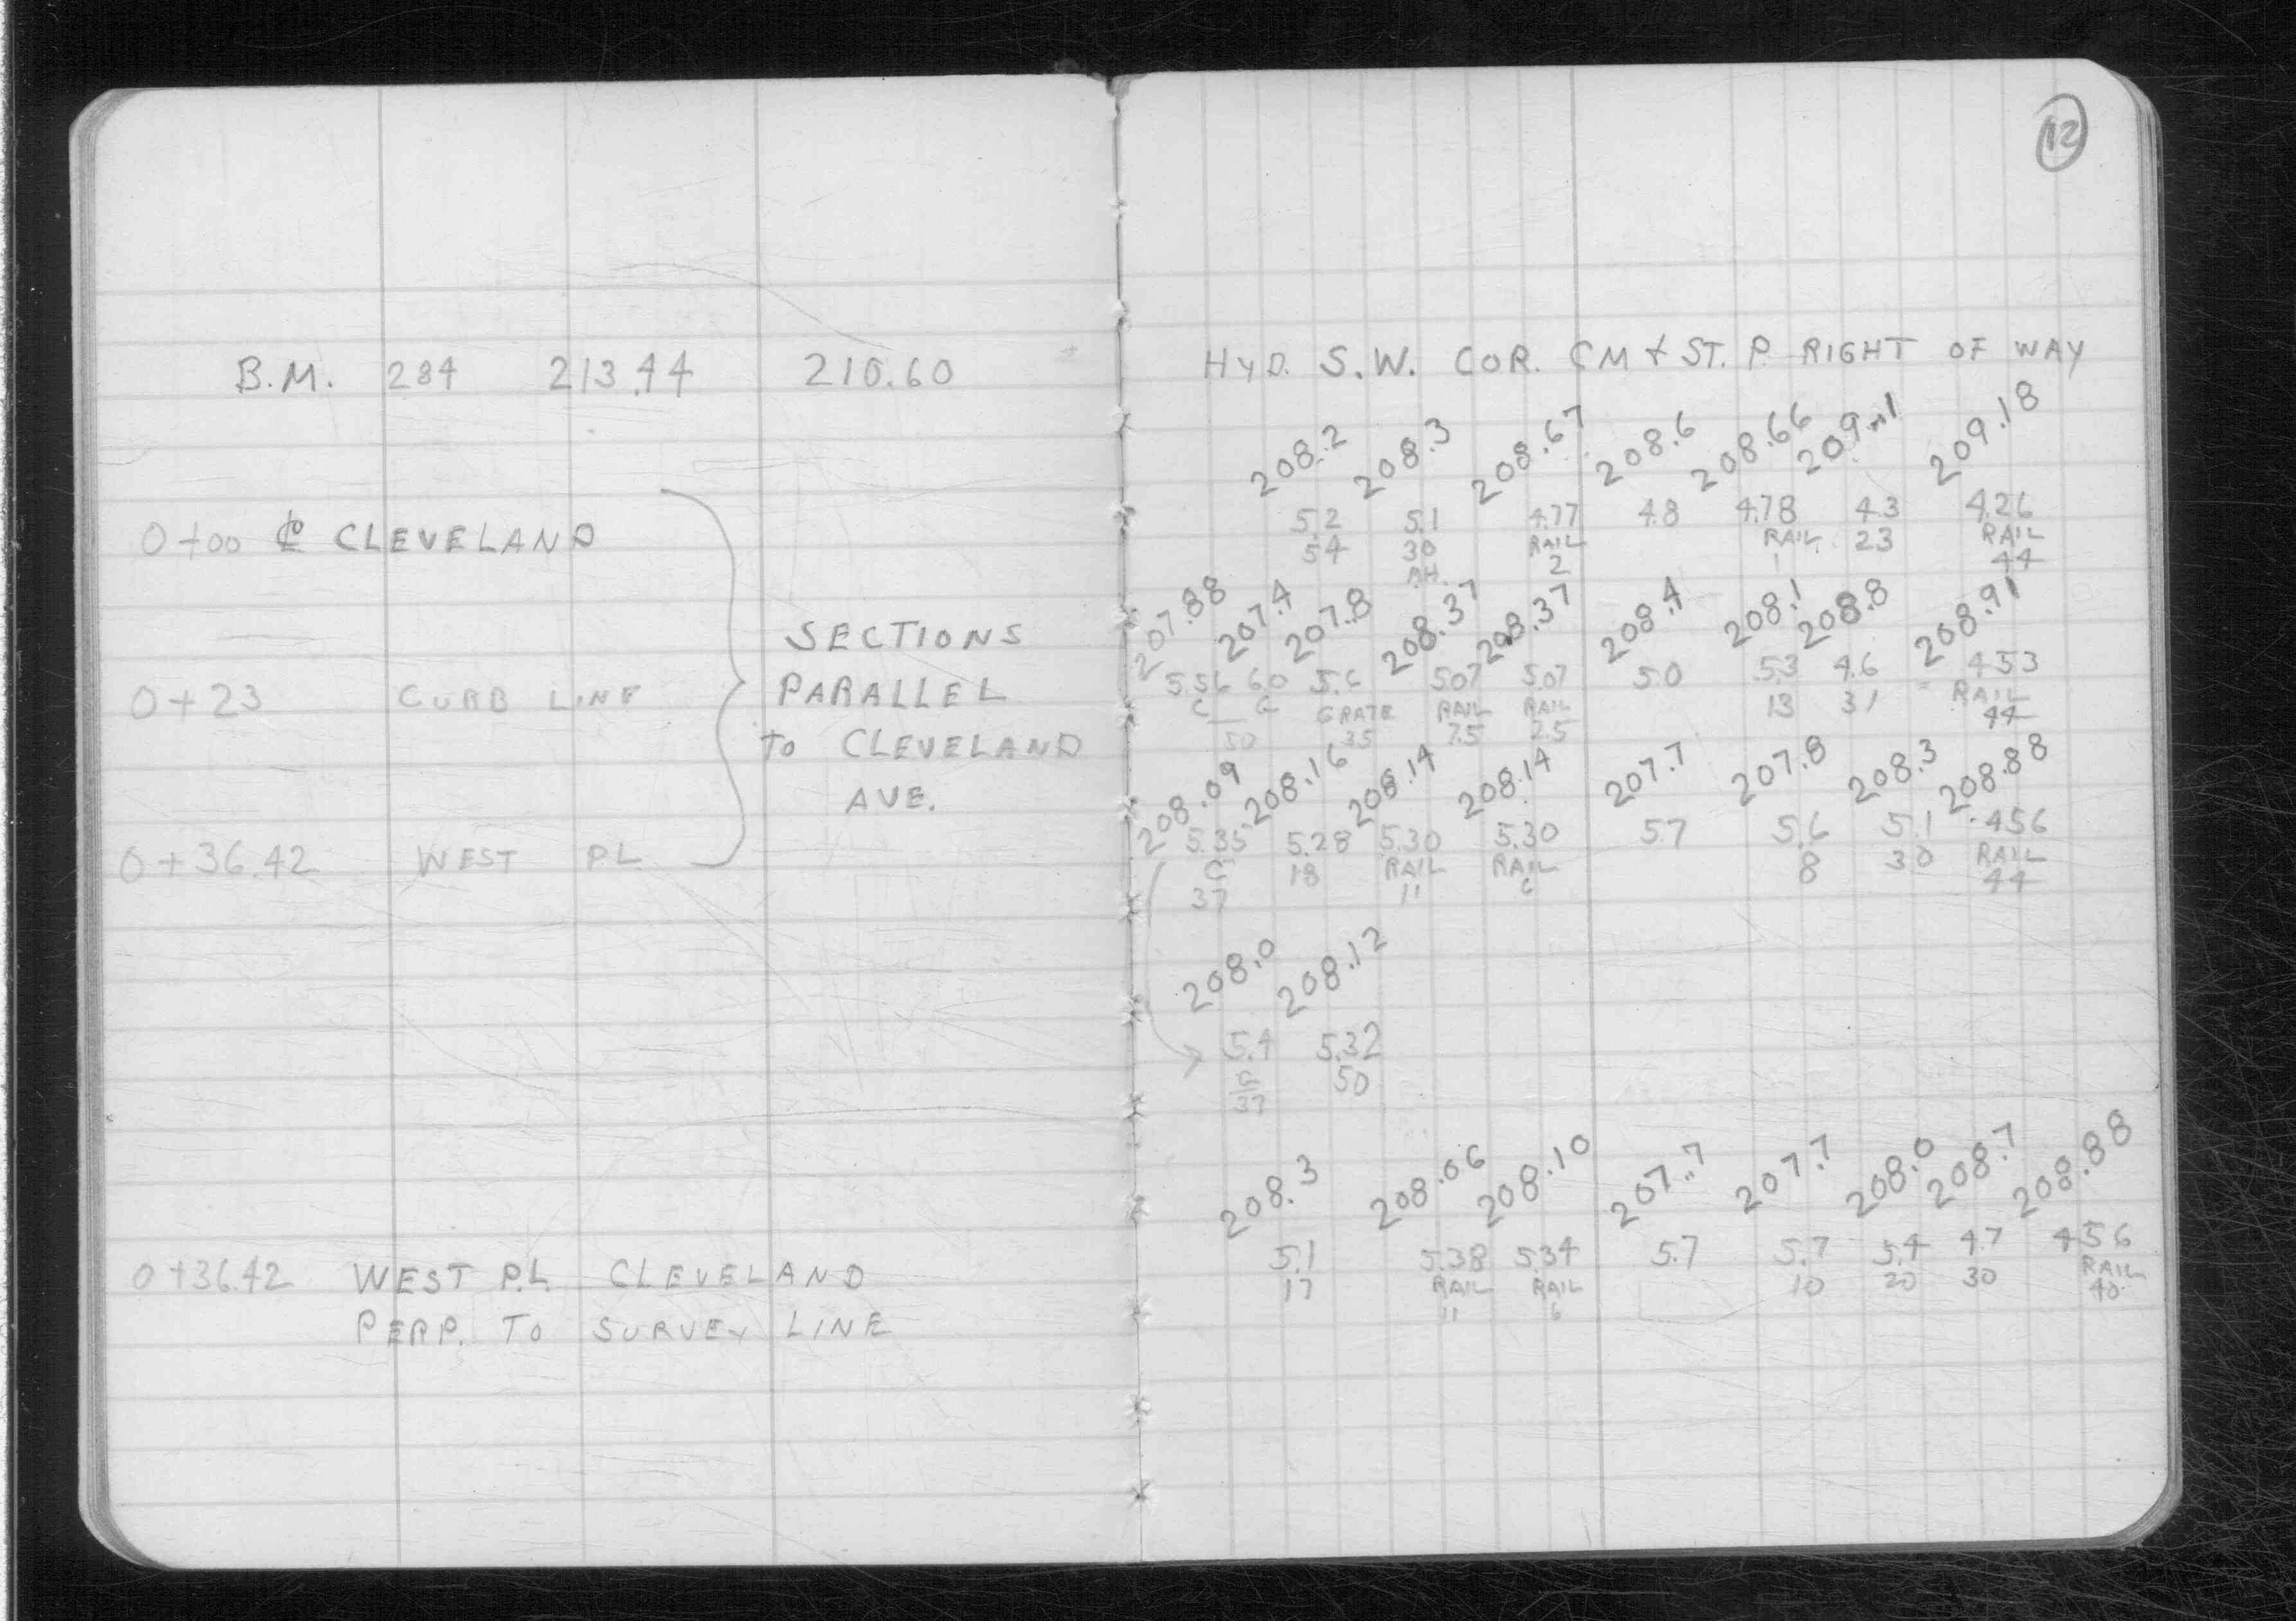 12
B.M. 284 213.44 210.60
HYD. S.W. COR. CM & ST. P. RIGHT OF WAY
208.2 208.3 208.67 208.6 208.66 209.1 209.18
0+00 ℄ CLEVELAND
5.2 5.1 4.77 4.8 4.78 4.3 4.26
54 30 RAIL RAIL 23 RAIL
2 1 44
207.88 207.4 207.8 208.37 208.37 208.4 208.1 208.8 208.91
SECTIONS
PARALLEL
TO CLEVELAND
AVE.
0+23 CURB LINE
5.56 6.0 5.6 5.07 5.07 5.0 5.3 4.6 4.53
C G GRATE RAIL RAIL 13 31 RAIL
50 35 7.5 2.5 44
208.09 208.16 208.14 208.14 207.7 207.8 208.3 208.88
0+36.42 WEST PL
5.35 5.28 5.30 5.30 5.7 5.6 5.1 4.56
C 18 RAIL RAIL 8 30 RAIL
37 11 6 44
208.0 208.12
5.4 5.32
G 50
37
208.3 208.06 208.10 207.7 207.7 208.0 208.7 208.88
0+36.42 WEST P.L. CLEVELAND
PERP. TO SURVEY LINE
5.1 5.38 5.34 5.7 5.7 5.4 4.7 4.56
17 RAIL RAIL 10 20 30 RAIL
11 6 40